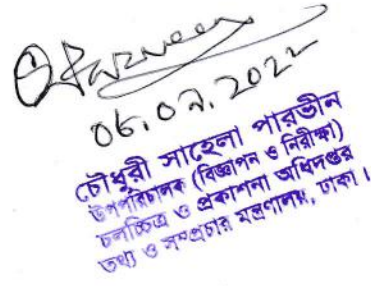 06.09.2022
চৌধুরী সাহেলা পারভীন
উপপরিচালক (বিজ্ঞাপন ও নিরীক্ষা)
চলচ্চিত্র ও প্রকাশনা অধিদপ্তর
তথ্য ও সম্প্রচার মন্ত্রণালয়, ঢাকা।